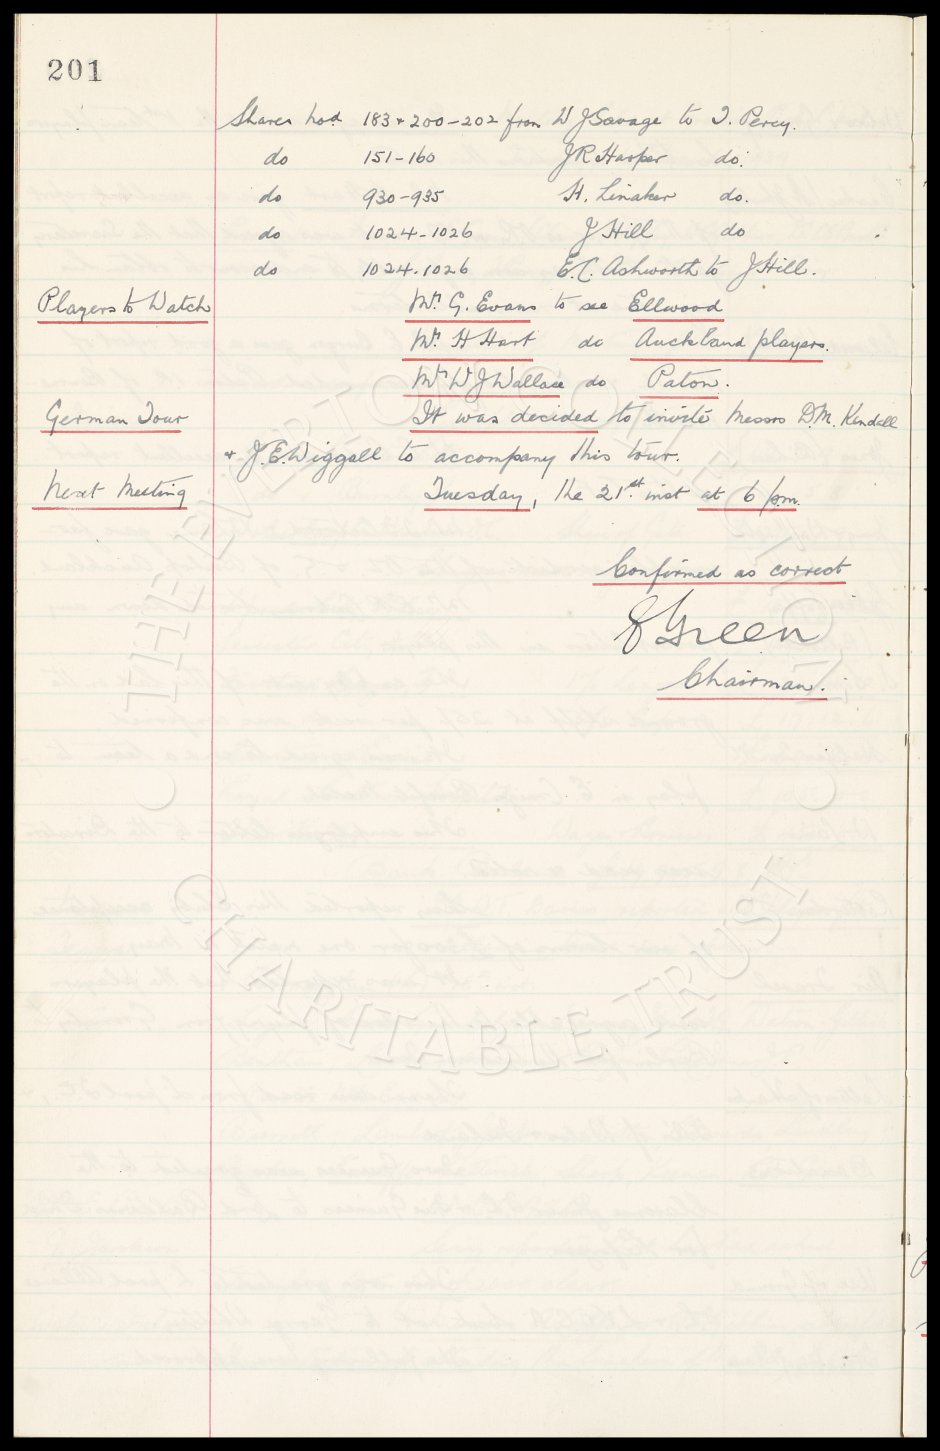 201
Shares Nos. 183 & 200-202 from W J Savage to T. Percy.
do 151-160 J R Harper do.
do 930-935 H. Linaker do.
do 1024-1026 J Hill do
do 1024-1026 E.C. Ashworth to J Hill.
Players to Watch Mr. G. Evans to see Ellwood
Mr. H Hart do Auckland players.
Mr. W J Wallace do Paton.
German Tour It was decided to invite Messrs D.M. Kendall
& J.E. Wiggall to accompany this tour.
Next Meeting Tuesday, the 21st. inst at 6 p.m.
Confirmed as correct
Green
Chairman.
THE EVERTON COLLECTION
CHARITABLE TRUST